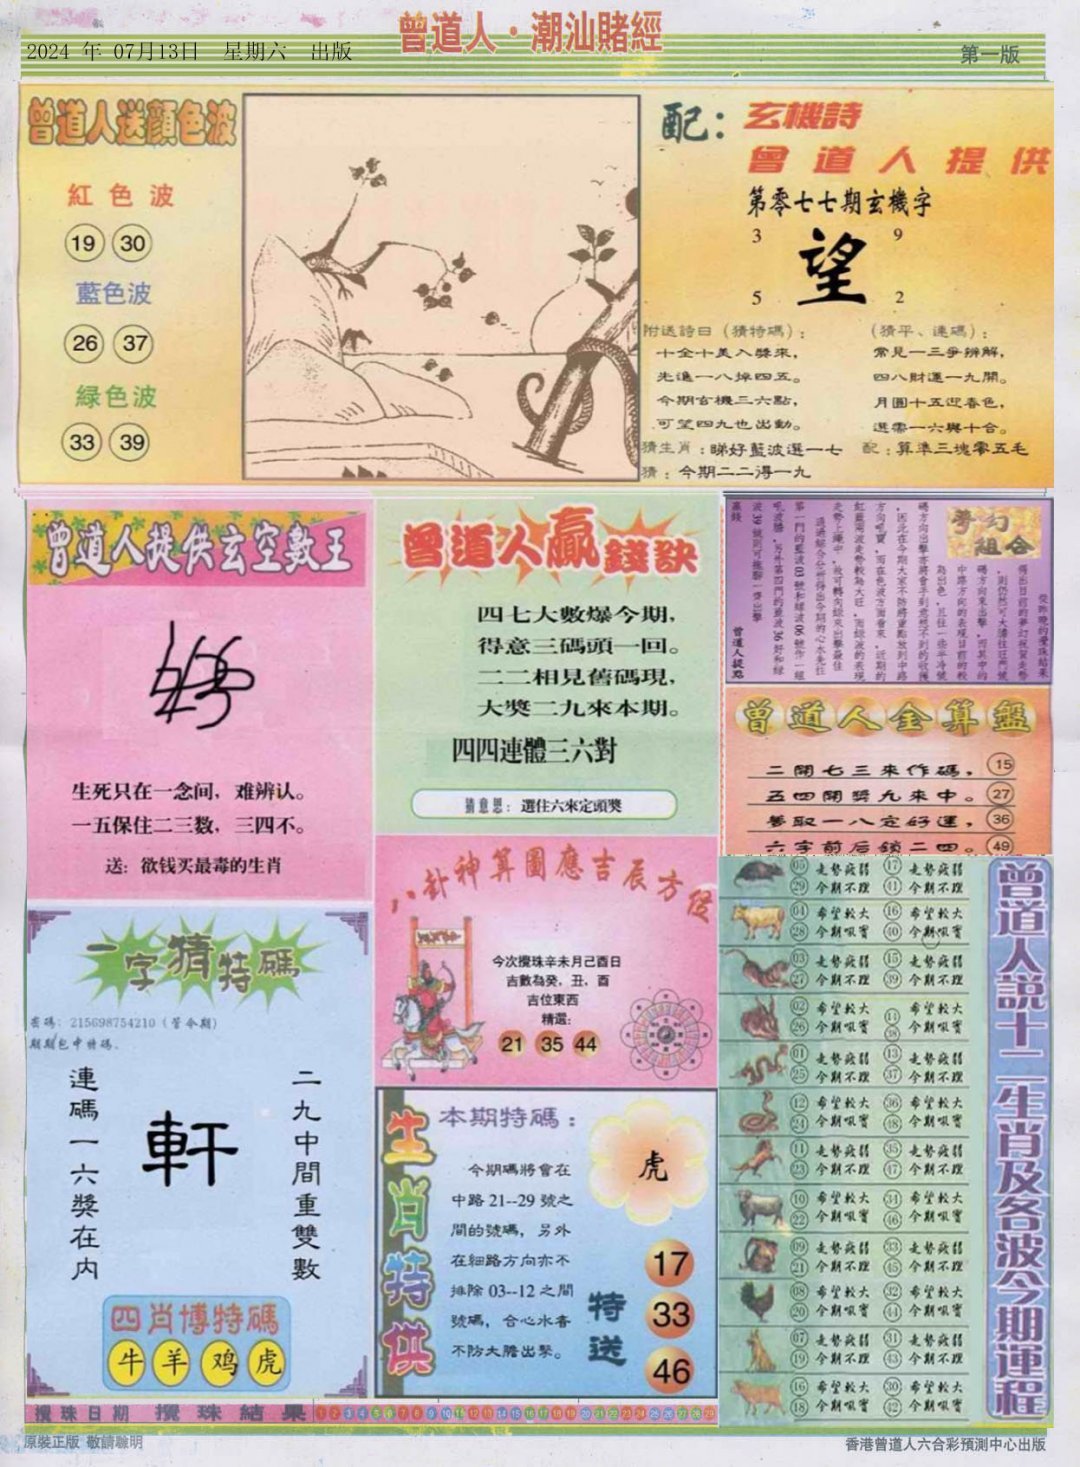 曾道人·潮汕賭經
2024 年 07月13日 星期六 出版
第一版
曾道人送顔色波
紅色波
19 30
藍色波
26 37
綠色波
33 39
配：玄機詩
曾道人提供
第零七七期玄機字
3 9
望
5 2
附送詩曰（猜特碼）：
十全十美入獎來，
先進一八掉四五。
今期玄機三六點，
可望四九也出動。
猜生肖：睇好藍波選一七
猜：今期二二得一九
（猜平、連碼）：
常見一三爭辨解，
四八財運一九開。
月圓十五迎春色，
選需一六與十合。
配：算準三塊零五毛
曾道人提供玄空數王
生死只在一念间，难辨认。
一五保住二三数，三四不。
送：欲钱买最毒的生肖
曾道人贏錢訣
四七大數爆今期，
得意三碼頭一回。
二二相見舊碼現，
大獎二九來本期。
四四連體三六對
猜意思：選住六來定頭獎
夢幻組合
曾道人提點
曾道人金算盤
二開七三來作碼，15
五四開獎九來中。27
夢取一八定好運，36
六字前后鎖二四。49
一字猜特碼
密碼：215698754210（管令期）
期期包中特碼.
二九中間重雙數
軒
連碼一六獎在内
四肖博特碼
牛 羊 鸡 虎
八卦神算圖應吉辰方位
今次攪珠辛未月己酉日
吉數為癸，丑，酉
吉位東西
精選：
21 35 44
生肖特供
本期特碼：
今期碼將會在
中路21--29號之
間的號碼，另外
在細路方向亦不
排除03--12之間
號碼，合心水者
不防大膽出擊。
虎
特送
17
33
46
曾道人説十二生肖及各波今期運程
05 29 走勢疲弱 今期不理 17 41 走勢疲弱 今期不理
04 28 希望較大 今期吼實 16 40 希望較大 今期吼實
03 27 走勢疲弱 今期不理 15 39 走勢疲弱 今期不理
02 26 希望較大 今期吼實 14 38 希望較大 今期吼實
01 25 走勢疲弱 今期不理 13 37 走勢疲弱 今期不理
12 24 希望較大 今期吼實 36 48 希望較大 今期吼實
11 23 走勢疲弱 今期不理 35 47 走勢疲弱 今期不理
10 22 希望較大 今期吼實 34 46 希望較大 今期吼實
09 21 走勢疲弱 今期不理 33 45 走勢疲弱 今期不理
08 20 希望較大 今期吼實 32 44 希望較大 今期吼實
07 19 走勢疲弱 今期不理 31 43 走勢疲弱 今期不理
16 18 希望較大 今期吼實 30 42 希望較大 今期吼實
攪珠日期 攪珠結果
原裝正版 敬請聯明
香港曾道人六合彩預測中心出版